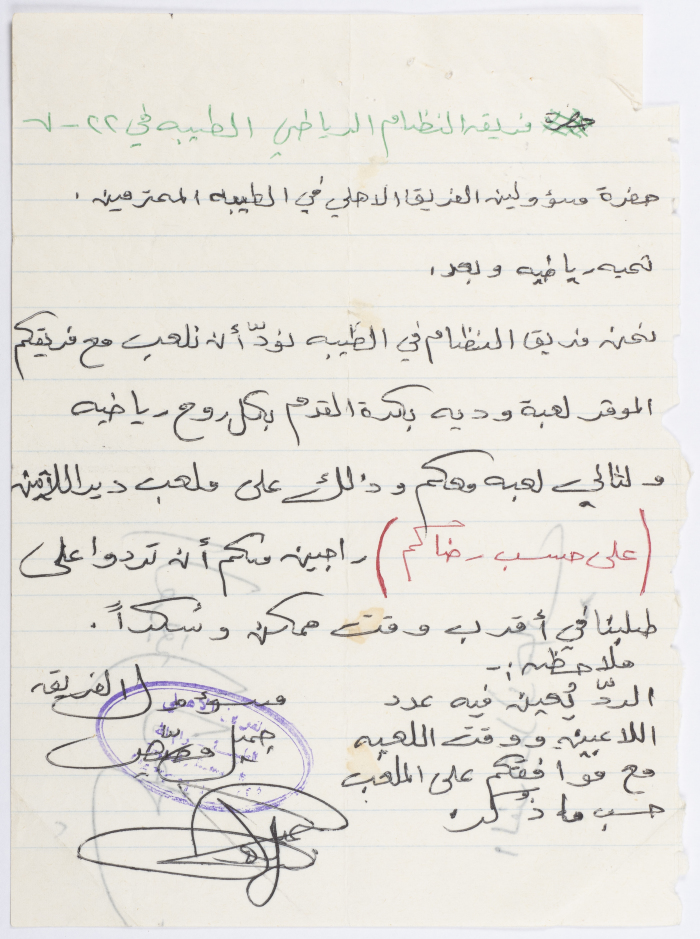 فريق النظام الرياضي الطيبه في ٢٢ - ٦
حضرة مسؤولين الفريق الاهلي في الطيبه المحترمين .
تحيه رياضيه وبعد ،
نحن فريق النظام في الطيبه نودّ أن نلعب مع فريقكم
الموقر لعبة وديه بكرة القدم بكل روح رياضيه
ولتالي لعبه معكم وذلك على ملعب دير اللاتين
(على حسب رضاكم) راجين منكم أن تردوا على
طلبنا في أقرب وقت ممكن وشكراً .
ملاحظه :-
الردّ يُعين فيه عدد
اللاعبين ووقت اللعبه
مع موافقتكم على الملعب
حسب ما ذُكر.
مسؤول الفريق
جميل
جميل